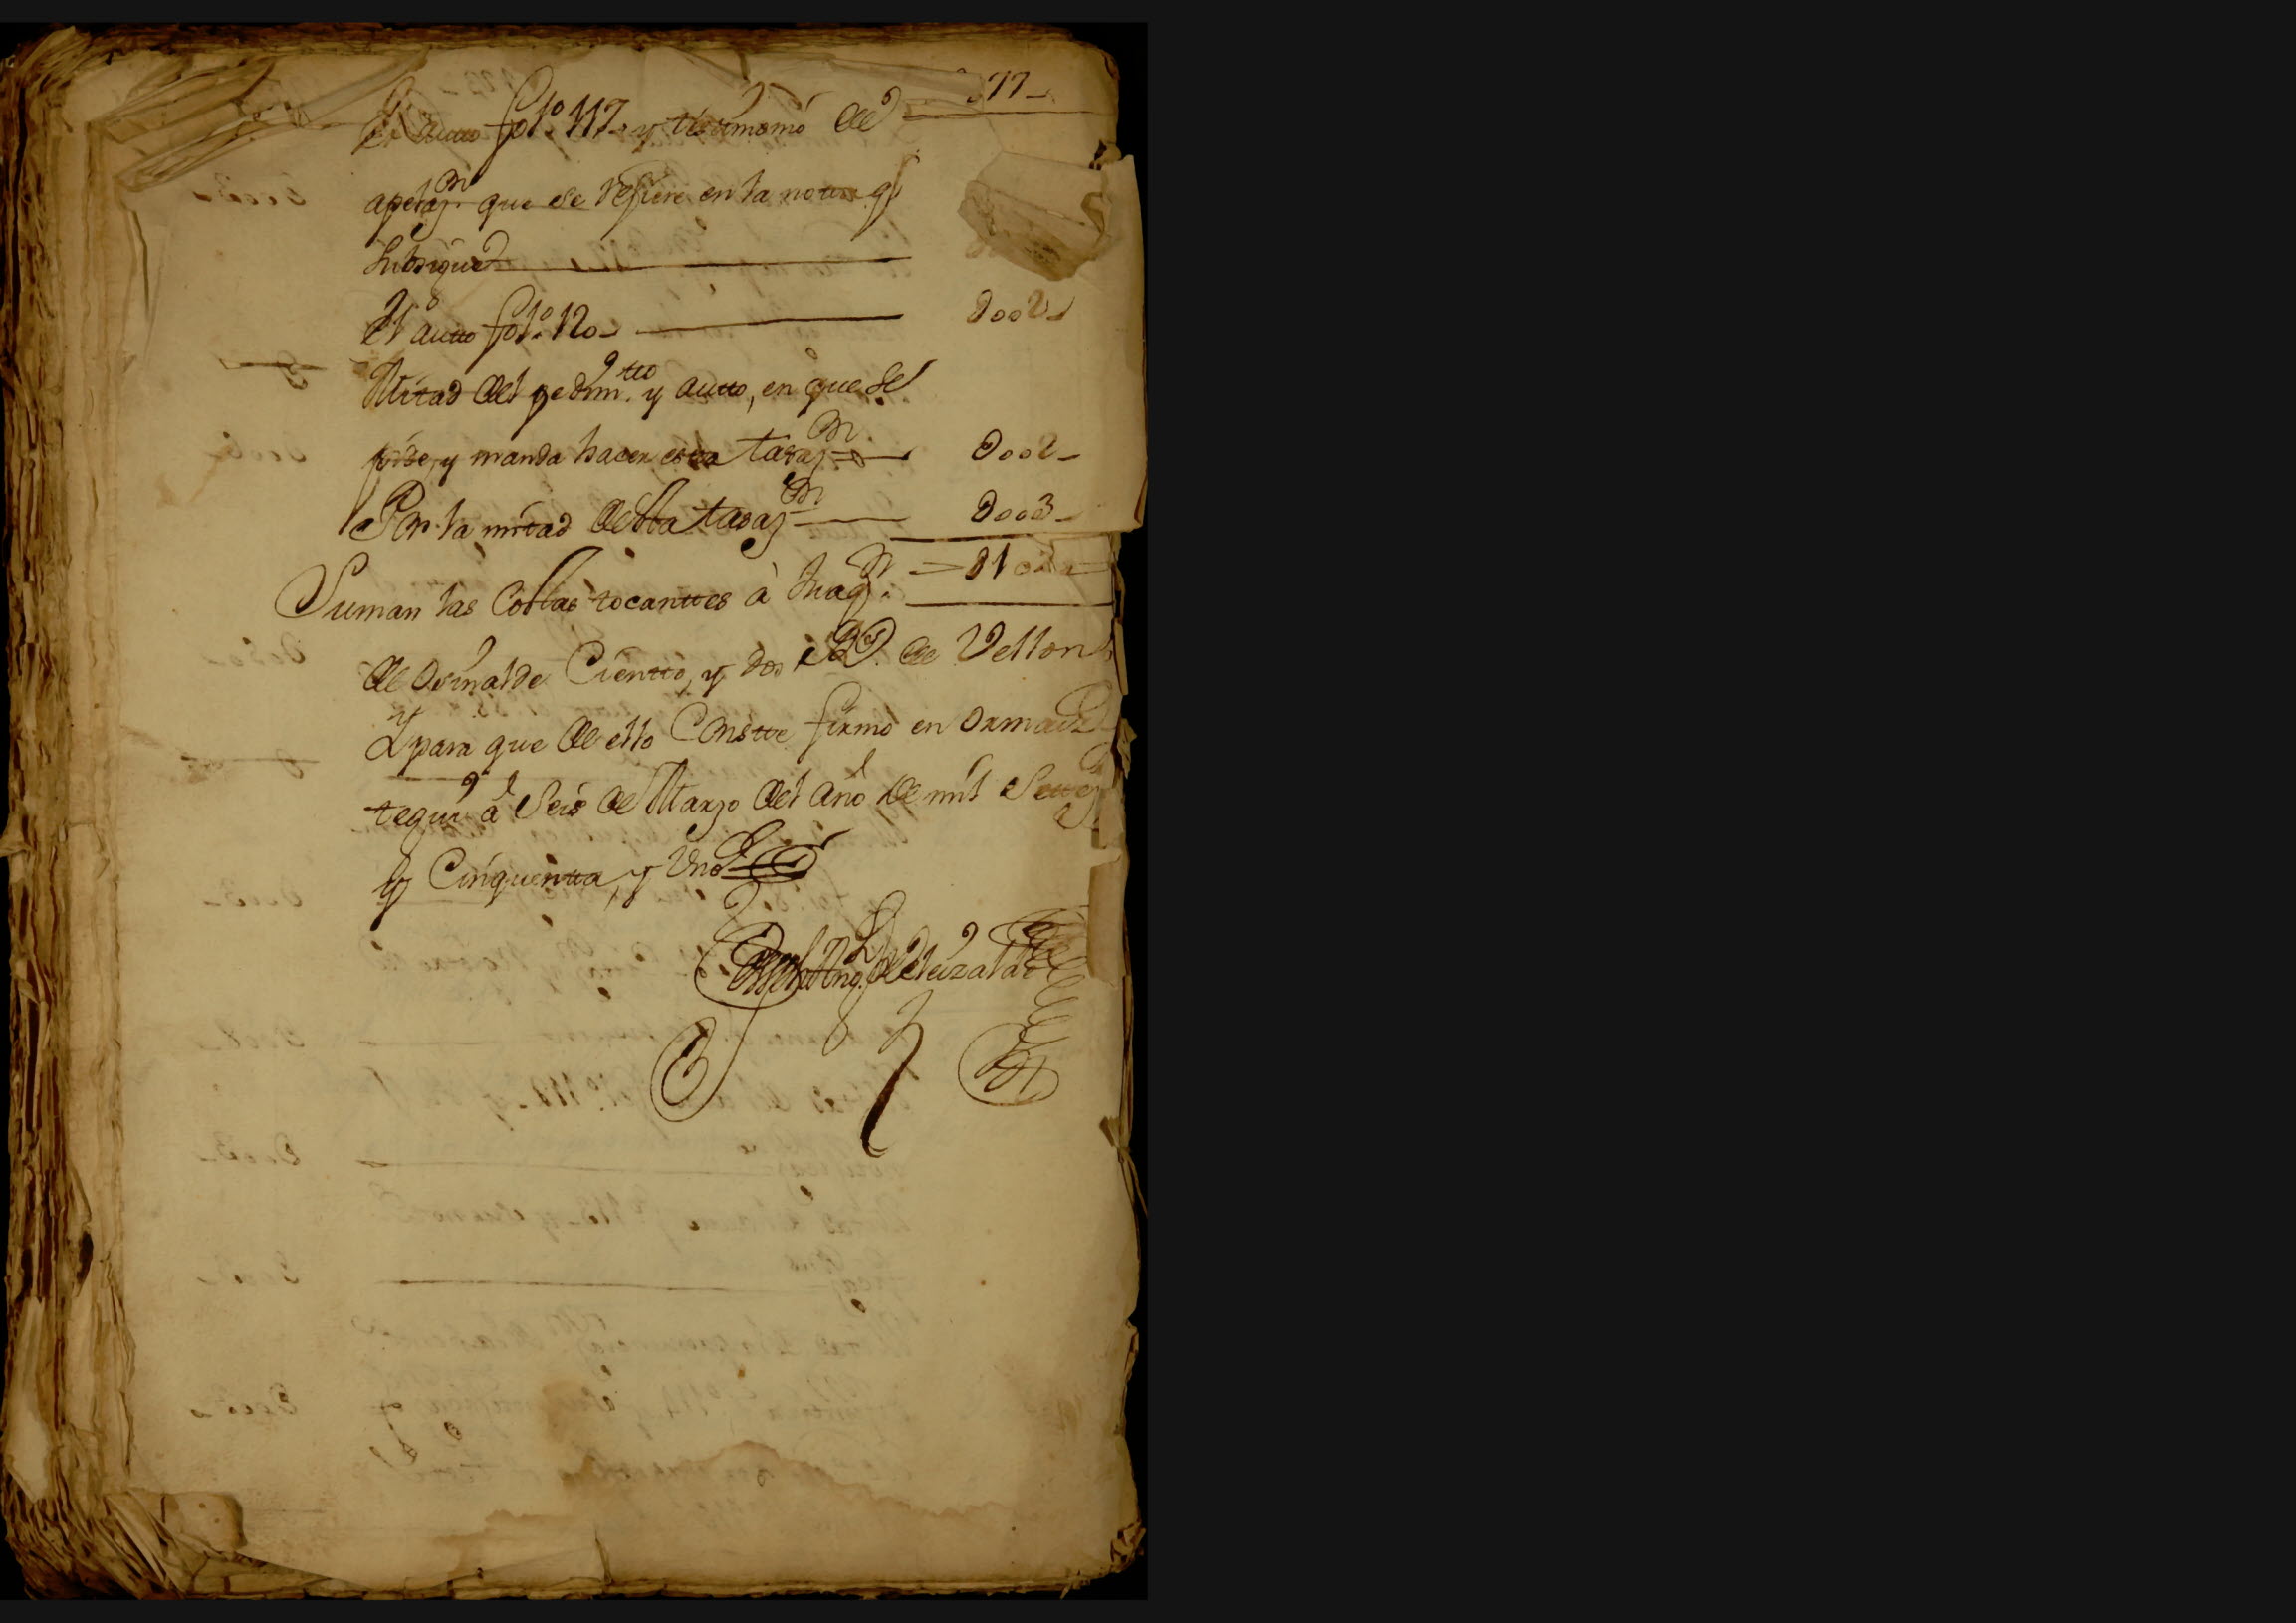 77_
El autto fol.º 117_ y testimonio de
apelaz.on que se refiere en la nota q.e
subsigue
El autto fol.º 120_ 0002_
Mitad del pedim.tto y autto, en que se
pide, y manda hacer esta tasaz.on 0002_
Por la mitad de esta tasaz.on 0003_
Suman las Costas tocanttes à Juaq.n 0102
de Osinalde Cientto, y dos R.s de Vellon
Y para que de ello Constte firmo en Ormaiz
tegui à Seis de Marzo del año de mil Settez.
y Cinquentta, y Uno
Ant.º de Eleizalde